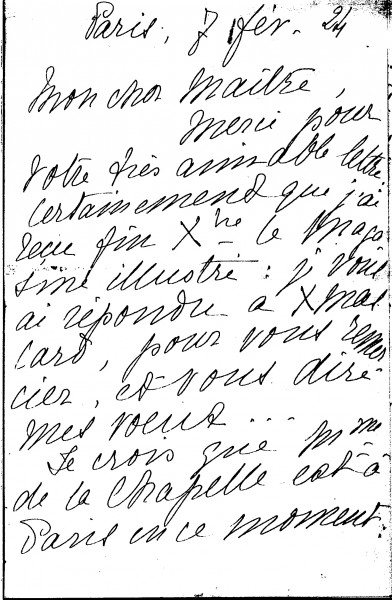 Paris, 7 fév. 24
Mon cher Maître,
Merci pour
votre très aimable lettre
certainement que j'ai
reçu fin Xbre le Maga
sine illustré: j vous
ai répondu a Xmas
Card, pour vous remer
cier, et vous dire
mes voeux...
Je crois que Mme
de la Chapelle est à
Paris en ce moment.